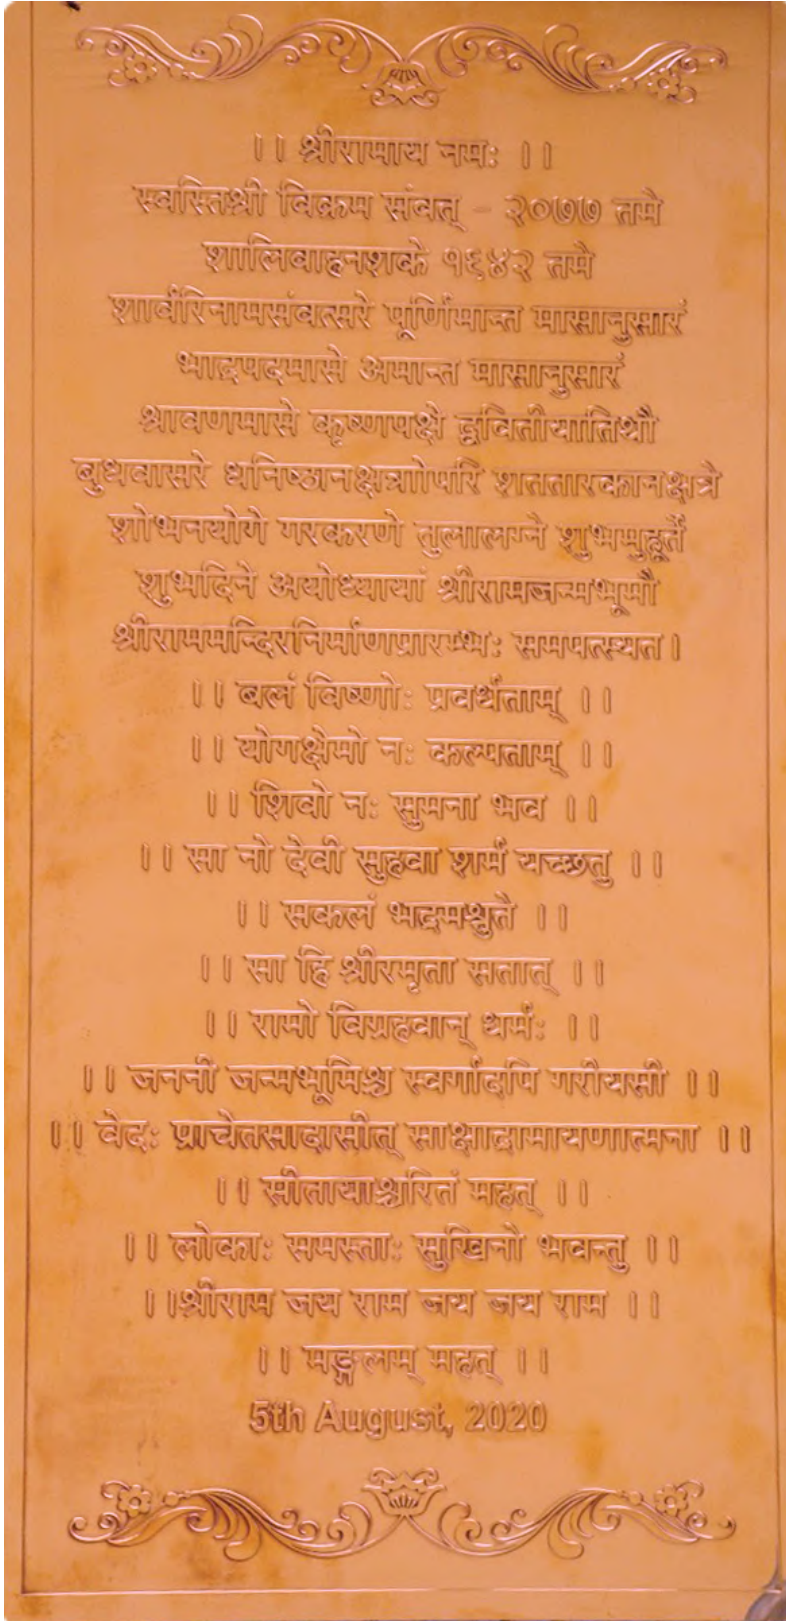 ।। श्रीरामाय नमः ।।
स्वस्तिश्री विक्रम संवत् - २०७७ तमे
शालिवाहनशके १९४२ तमे
शार्वरिनामसंवत्सरे पूर्णिमान्त मासानुसारं
भाद्रपदमासे अमान्त मासानुसारं
श्रावणमासे कृष्णपक्षे द्ववितीयातिथौ
बुधवासरे धनिष्ठानक्षत्रोपरि शततारकानक्षत्रे
शोभनयोगे गरकरणे तुलालग्ने शुभमुहूर्ते
शुभदिने अयोध्यायां श्रीरामजन्मभूमौ
श्रीराममन्दिरनिर्माणप्रारम्भः समपत्स्यत।
।। बलं विष्णोः प्रवर्धताम् ।।
।। योगक्षेमो नः कल्पताम् ।।
।। शिवो नः सुमना भव ।।
।। सा नो देवी सुहवा शर्म यच्छतु ।।
।। सकलं भद्रमश्नुते ।।
।। सा हि श्रीरमृता सताम् ।।
।। रामो विग्रहवान् धर्मः ।।
।। जननी जन्मभूमिश्च स्वर्गादपि गरीयसी ।।
।। वेदः प्राचेतसादासीत् साक्षाद्रामायणात्मना ।।
।। सीतायाश्चरितं महत् ।।
।। लोकाः समस्ताः सुखिनो भवन्तु ।।
।।श्रीराम जय राम जय जय राम ।।
।। मङ्गलम् महत् ।।
5th August, 2020